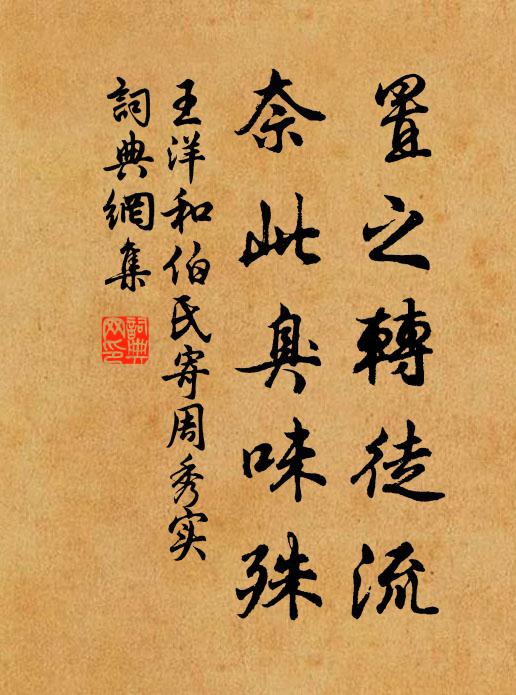 置之轉徒流
奈此臭味殊
王洋和伯氏寄周秀实
詞典網集
詞典网印